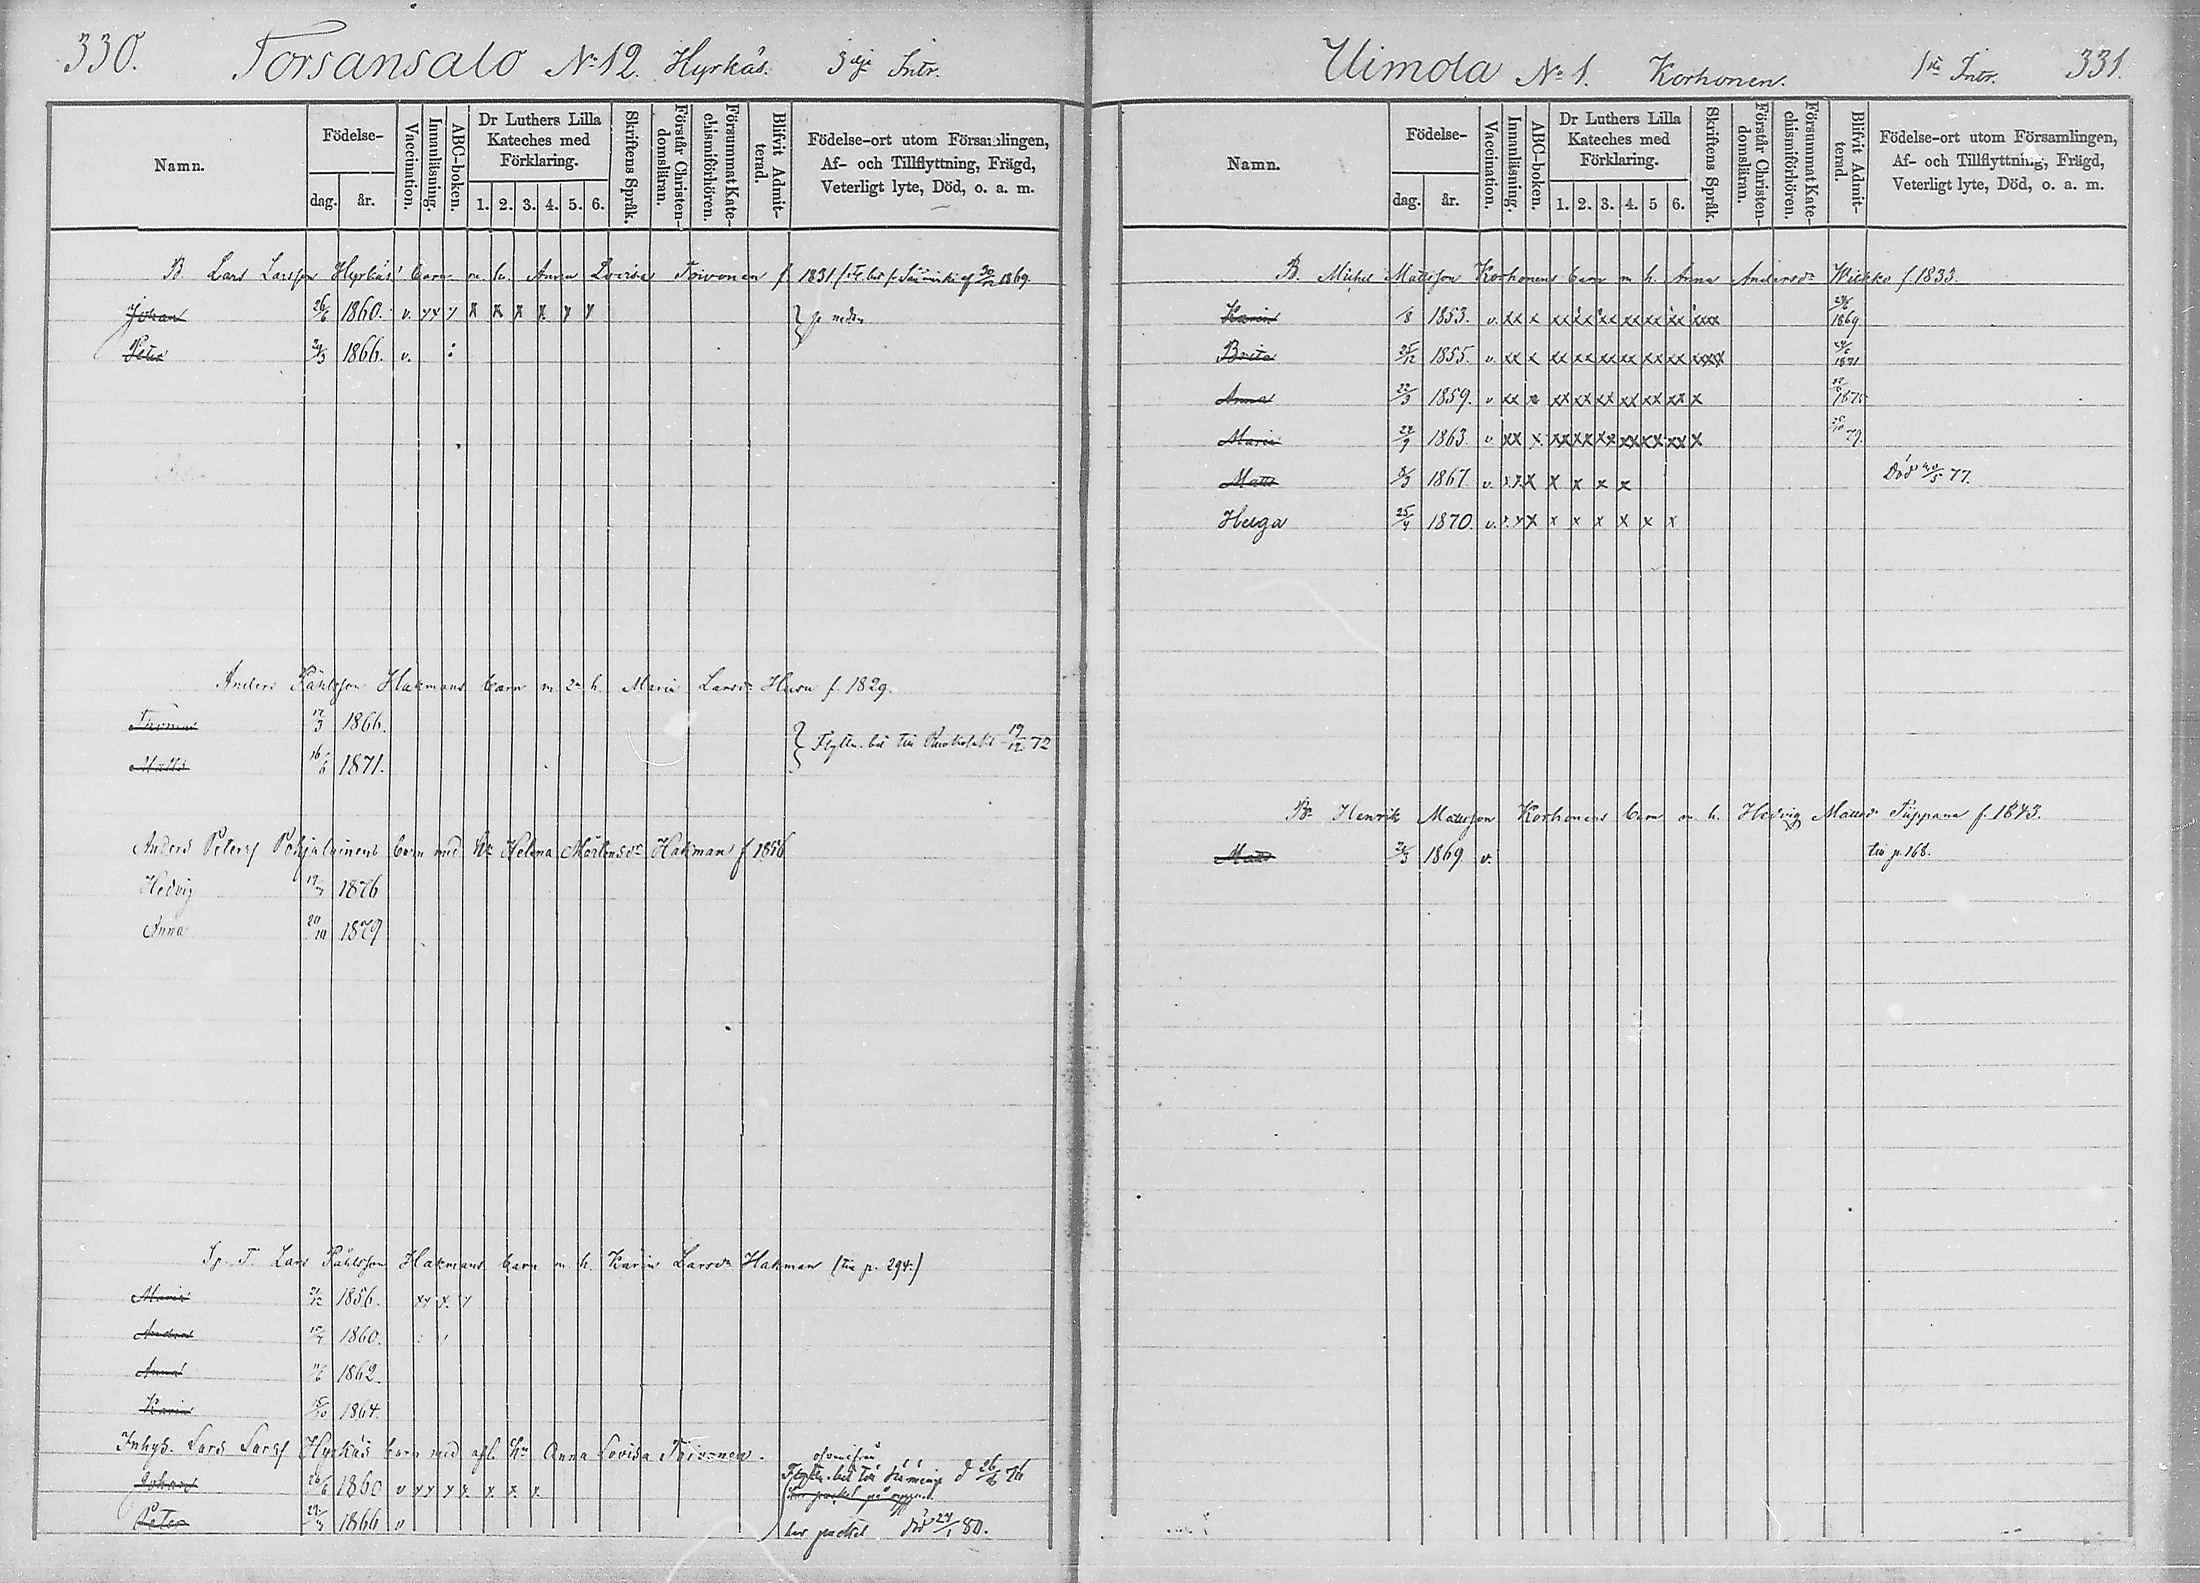 330. Torsansalo No 12. Hyrkäs. 3dje Intr.
Namn.
Födelse-
dag. år.
Vaccination.
Innanläsning.
ABC-boken.
Dr Luthers Lilla Kateches med Förklaring.
1. 2. 3. 4. 5. 6.
Skriftens Språk.
Förstår Christen-domsläran.
Försummat Kate-chismiförhören.
Blifvit Admit-terad.
Födelse-ort utom Församlingen,
Af- och Tillflyttning, Frägd,
Veterligt lyte, Död, o. a. m.
B. Lars Larsson Hyrkäs' barn m. h. Anna Lovisa Toivonen f. 1831.
Johan 26/6 1860. v. x x x x x x x x x
Peter 1866. v.
Anders Påhlsson Hakmans barn m 2a h. Maria Larsdr Husu f. 1829.
Thomas 1866.
Matts 16/6 1871.
Flyttn. bet till 19/12 72
Anders Peterss Pohjalainens barn med Hu Helena Mårtensdr Hakman f 1856
Hedvig 1876
Anna 20/10 1879
Sp. T. Lars Påhlsson Hakmans barn m. h. Karin Larsdr Hakman (till p. 294.)
Maria 1856. xx x x
Anders 1860.
Anna 1862.
Karin 1864.
Inhys. Lars Larss Hyrkäs barn med afl. Hu Anna Lovisa Toivonen.
Johan 26/6 1860 v x x x x x x x
Flyttn. bet till d 26/6 76
Peter 1866 v
har puckel död 24/1 80.
Uimola No 1. Korhonen. 1sta Intr. 331.
Namn.
Födelse-
dag. år.
Vaccination.
Innanläsning.
ABC-boken.
Dr Luthers Lilla Kateches med Förklaring.
1. 2. 3. 4. 5 6.
Skriftens Språk.
Förstår Christen-domsläran.
Försummat Kate-chismiförhören.
Blifvit Admit-terad.
Födelse-ort utom Församlingen,
Af- och Tillflyttning, Frägd,
Veterligt lyte, Död, o. a. m.
B. Michel Mattsson Korhonens barn m h. Anna Andersdr Wickko f 1833.
Karin 1853. v. xx x xx xx xx xx xx xx xxx 1869
Brita 25/12 1855. v. xx x xx xx xx xx xx xx xxxx 1871
Anna 22/3 1859. v. xx x xx xx xx xx xx xx x 1875
Maria 1863. v. xx x xx xx xx xx xx xx x 79.
Matts 1867. v. x x x x x x x Död 77.
Helga 25/4 1870. v. x x x x x x x x x
Bn Henrik Mattsson Korhonens barn m. h. Hedvig Mattsdr Tiippana f. 1843.
Matts 1869 v. till p. 168.